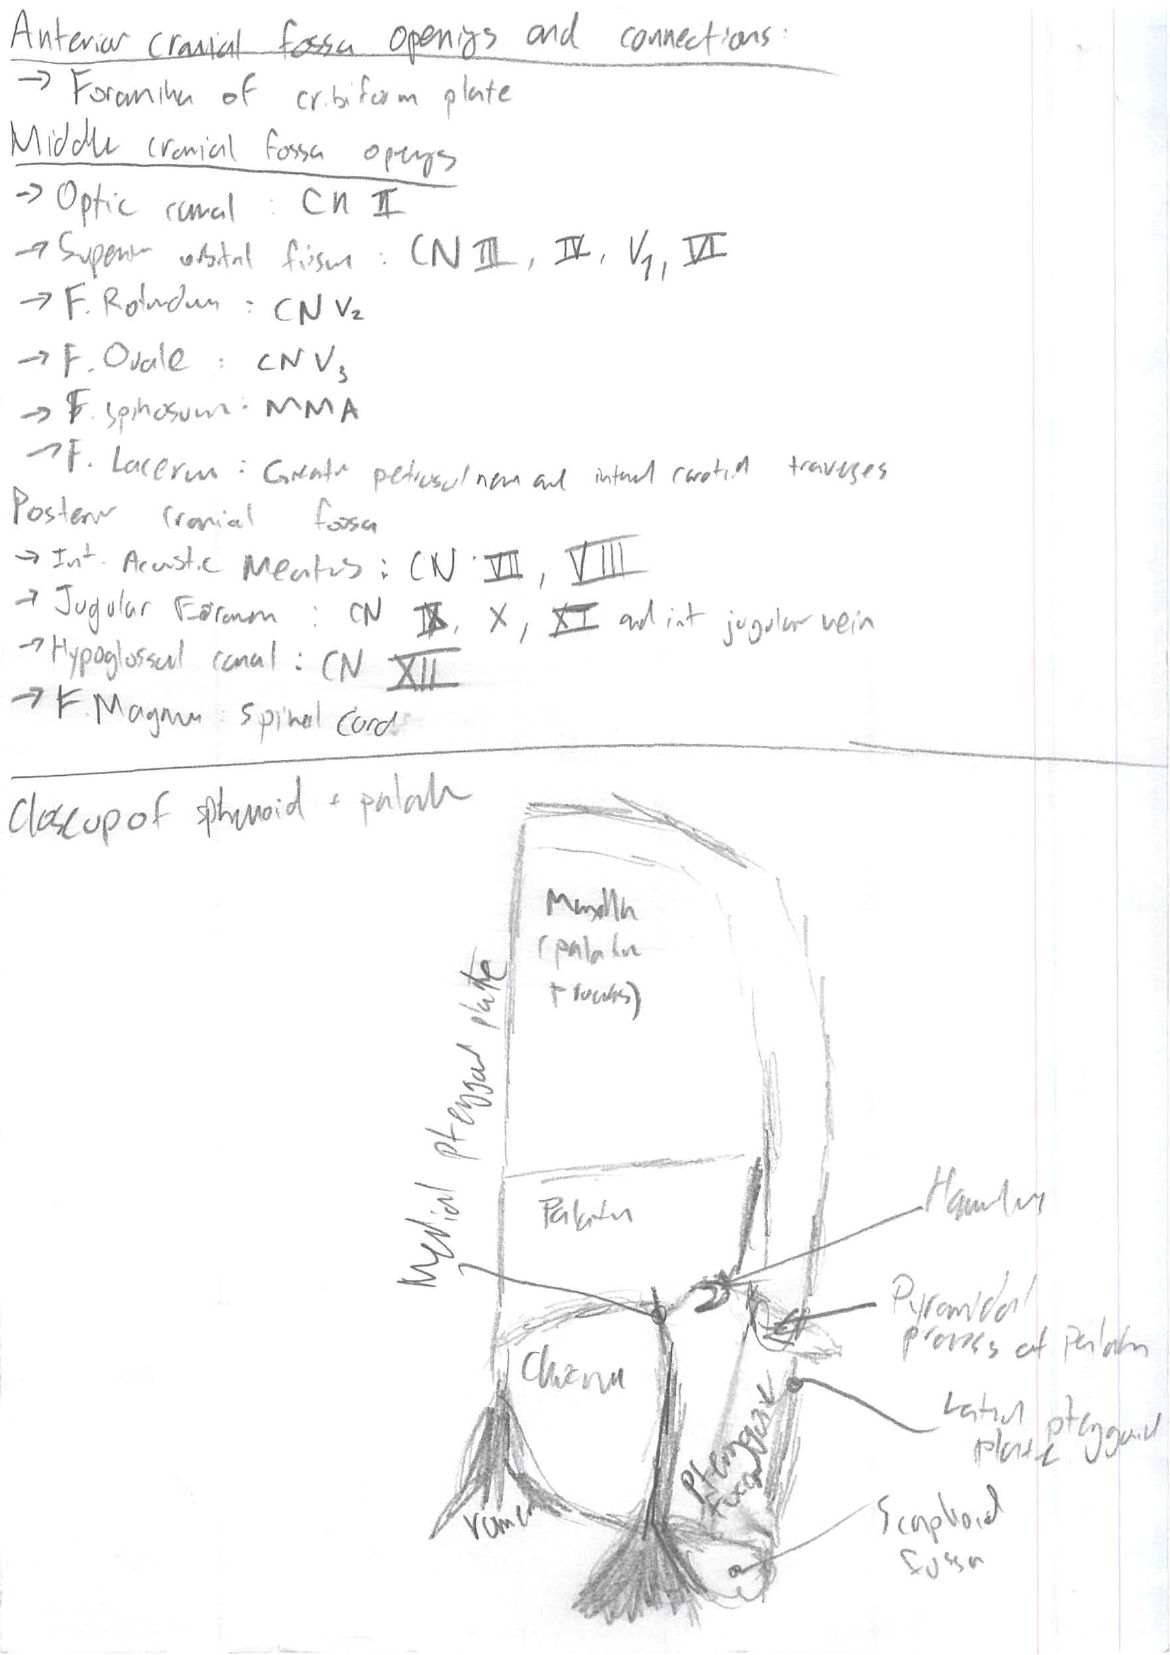 Anterior cranial fossa openigs and connections:
→ Foramina of cribiform plate
Middle cranial fossa openigs
→ Optic canal : CN II
→ Superior orbital fissure : CN III, IV, V1, VI
→ F. Rotundum : CN V2
→ F. Ovale : CN V3
→ F. Spinosum: MMA
→ F. Lacerum : Greater petrosal nerve and internal carotid traverses
Posterior cranial fossa
→ Int. Acustic Meatus : CN VII, VIII
→ Jugular Foramen : CN IX, X, XI and int jugular vein
→ Hypoglossal canal : CN XII
→ F. Magnum : Spinal Cord
Closeup of sphenoid + palate
Maxilla
(palatine
process)
Medial pterygoid plate
Palatine
Hamulus
Pyramidal
process of Palatine
Choana
Lateral pterygoid
plate
Pterygoid
fossa
Vomer
Scaphoid
fossa